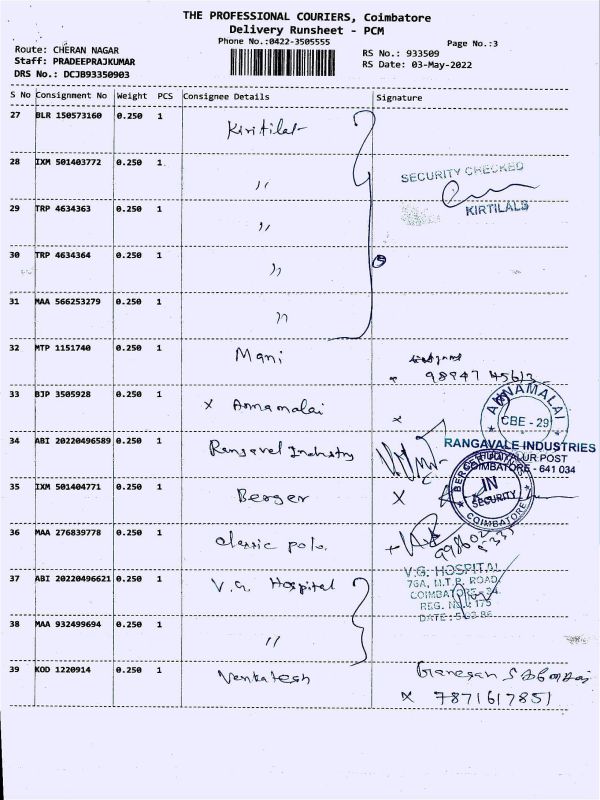 THE PROFESSIONAL COURIERS, Coimbatore
Delivery Runsheet - PCM
Phone No.:0422-3505555
Page No.:3
Route: CHERAN NAGAR
RS No.: 933509
Staff: PRADEEPRAJKUMAR
RS Date: 03-May-2022
DRS No.: DCJB93350903
S No Consignment No Weight PCS Consignee Details Signature
27 BLR 150573160 0.250 1 Kiritilal
28 IXM 501403772 0.250 1 ,,
SECURITY CHECKED
KIRTILALS
29 TRP 4634363 0.250 1 ,,
30 TRP 4634364 0.250 1 ,,
5
31 MAA 566253279 0.250 1 ,,
32 MTP 1151740 0.250 1 Mani
98947 45613
33 BJP 3505928 0.250 1 x Annamalai x
ANNAMALAI
CBE - 29
34 ABI 20220496589 0.250 1 Rangavel Industry
RANGAVALE INDUSTRIES
COIMBATORE - 641 034
35 IXM 501404771 0.250 1 Berger X
BERGER
IN
SECURITY
COIMBATORE
36 MAA 276839778 0.250 1 classic polo.
37 ABI 20220496621 0.250 1 V.G. Hospital
V.G. HOSPITAL
76A, M.T.P. ROAD,
COIMBATORE - 34.
REG. No. 175
38 MAA 932499694 0.250 1 ,,
39 KOD 1220914 0.250 1 Venkatesh
Ganesan
x 7871617851